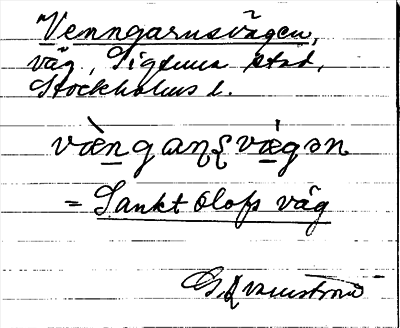 Venngarnsvägen,
väg, Sigtuna stad,
Stockholms l.
væ̀nganʂvæ̀gən
= Sankt Olofs väg